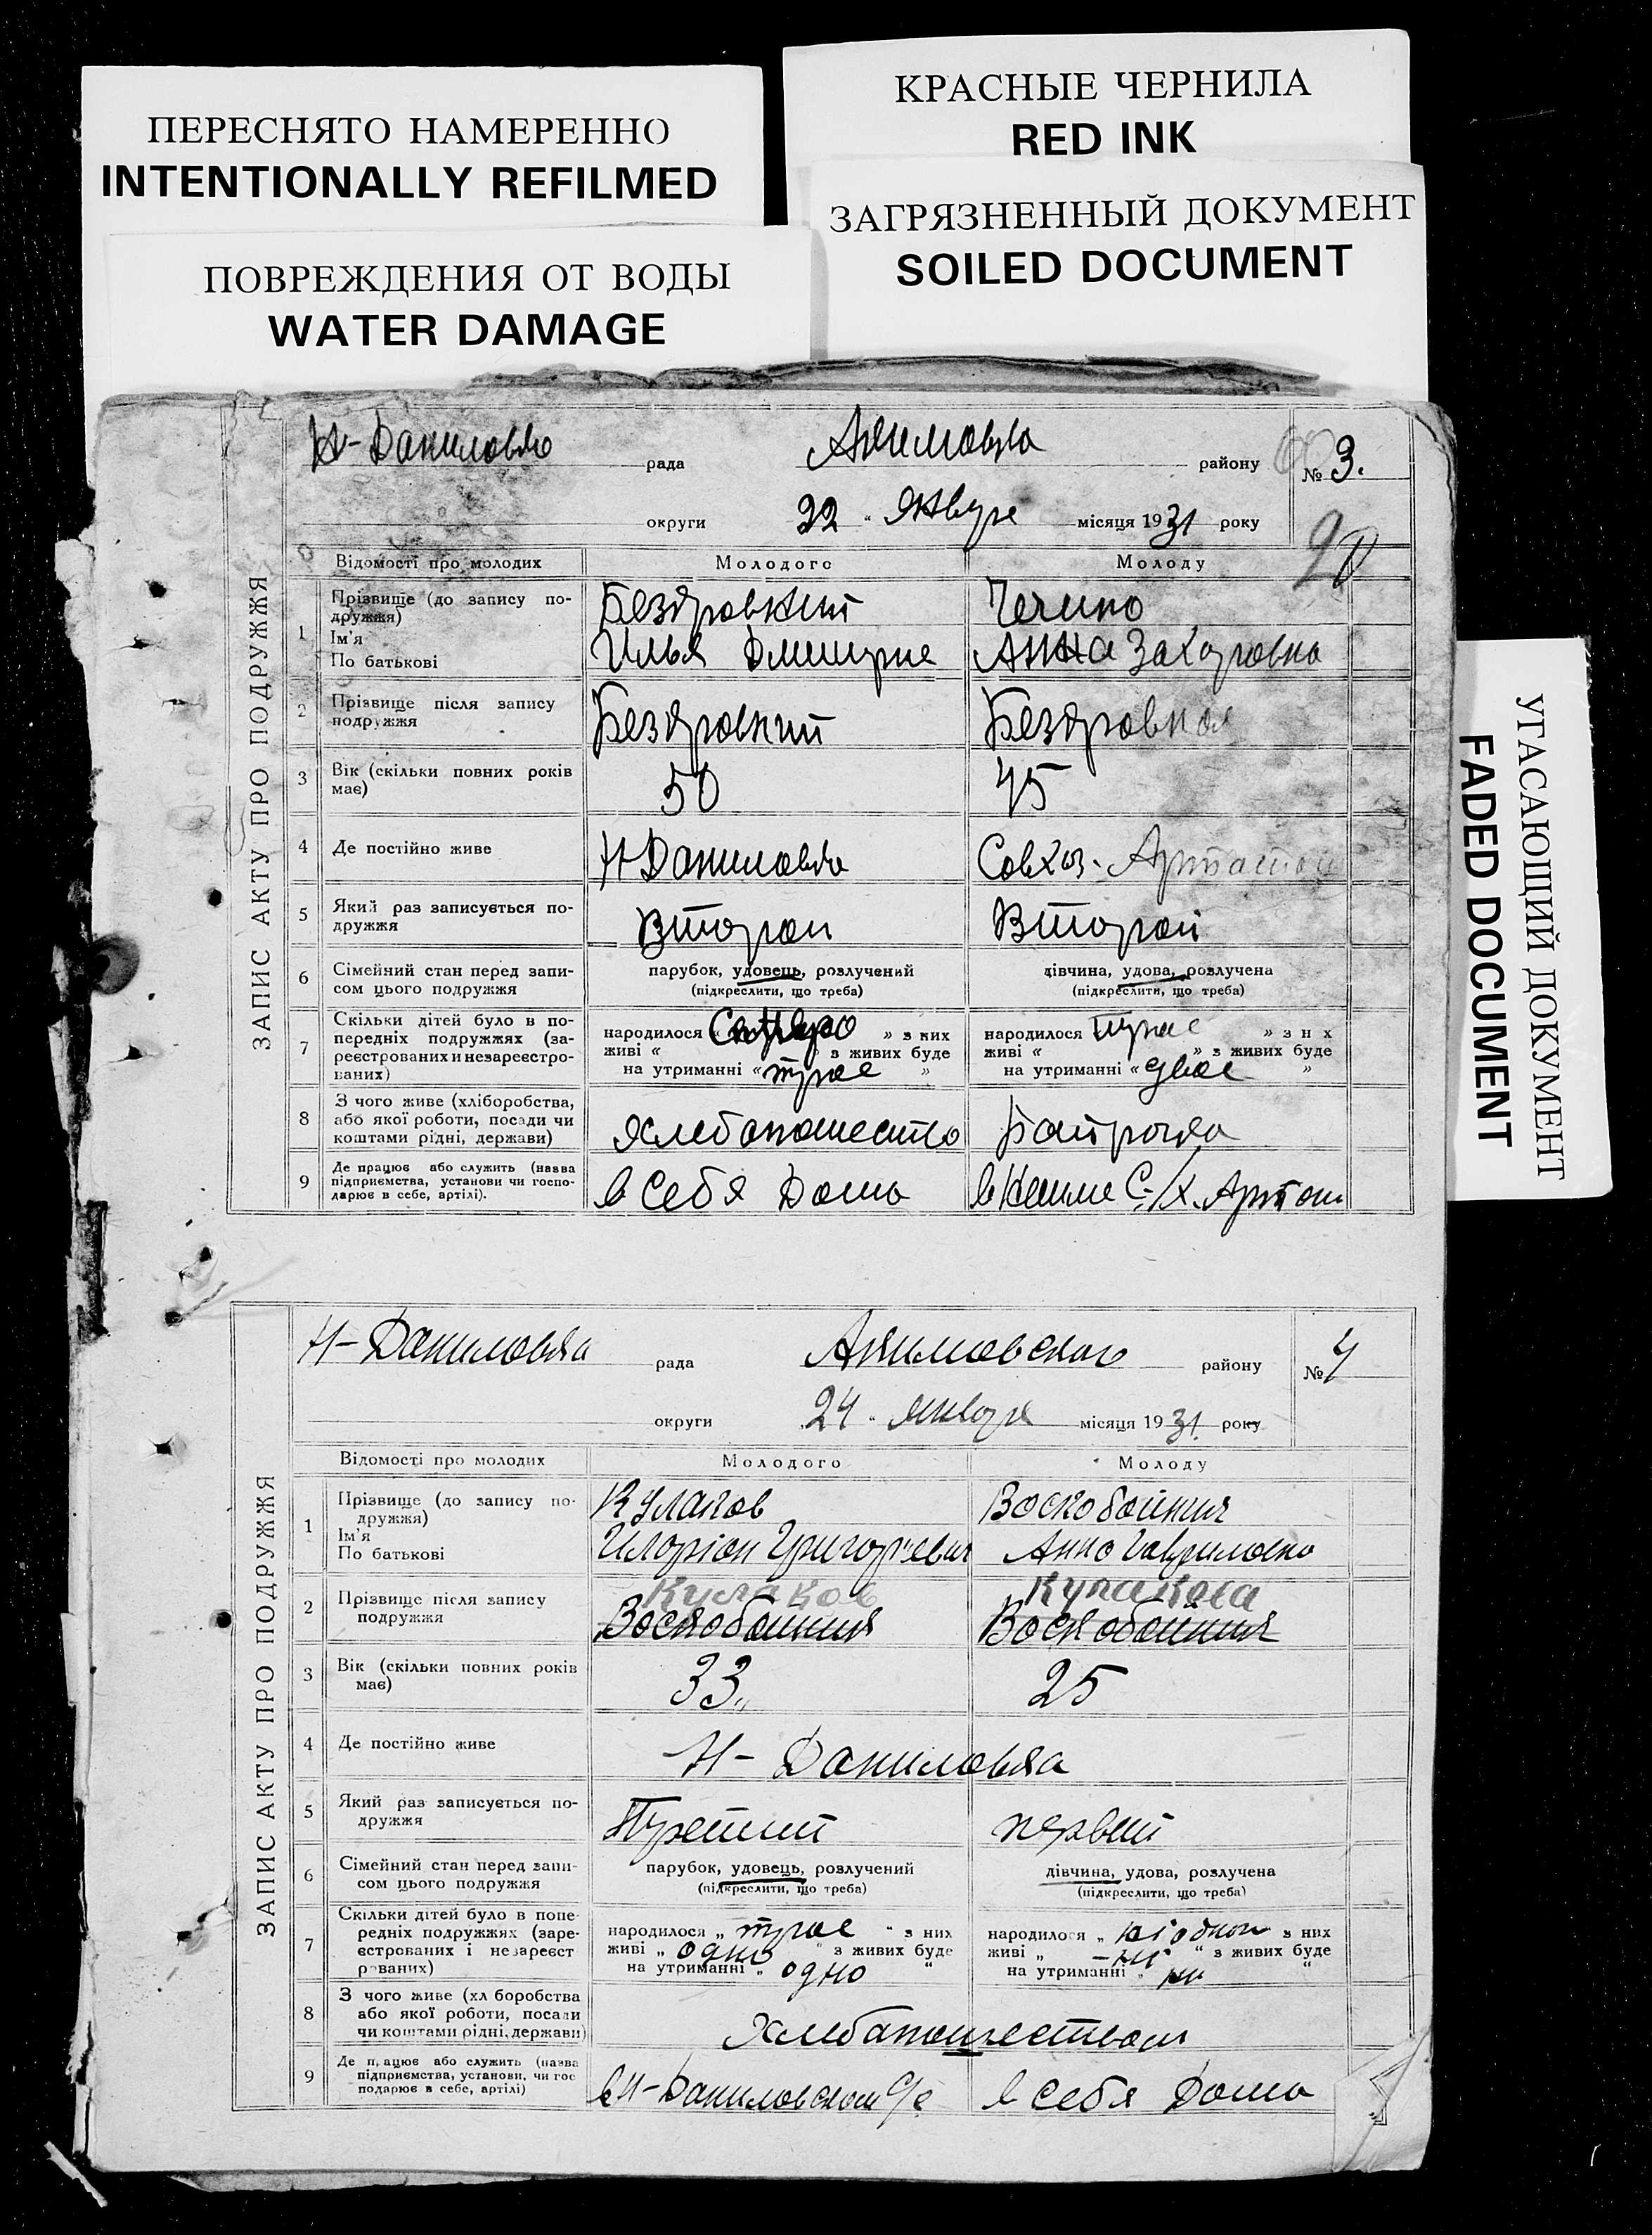 ПЕРЕСНЯТО НАМЕРЕННО
INTENTIONALLY REFILMED
КРАСНЫЕ ЧЕРНИЛА
RED INK
ЗАГРЯЗНЕННЫЙ ДОКУМЕНТ
SOILED DOCUMENT
ПОВРЕЖДЕНИЯ ОТ ВОДЫ
WATER DAMAGE
УГАСАЮЩИЙ ДОКУМЕНТ
FADED DOCUMENT
ЗАПИС АКТУ ПРО ПОДРУЖЖЯ
Н-Даниловка рада Акимовка району № 3.
округи 22 „ января місяця 1931 року
Відомості про молодих Молодого Молоду
1 Прізвище (до запису подружжя)
Ім'я
По батькові
Илья
Анна Захаровна
2 Прізвище після запису
подружжя
3 Вік (скільки повних років
має)
50 45
4 Де постійно живе Н Даниловка Совхоз
5 Який раз записується по-
дружжя
Второй Второй
6 Сімейний стан перед запи-
сом цього подружжя
парубок, удовець, розлучений
(підкреслити, що треба)
дівчина, удова, розлучена
(підкреслити, що треба)
7 Скільки дітей було в по-
передніх подружжях (за-
реєстрованих и незареєстро-
ваних)
народилося « » з них
живі « » з живих буде
на утриманні « трое »
народилося трое » з н х
живі « » з живих буде
на утриманні « двое »
8 З чого живе (хліборобства,
або якої роботи, посади чи
коштами рідні, держави)
9 Де працює або служить (назва
підприємства, установи чи госпо-
дарює в себе, артілі).
в себя дома
ЗАПИС АКТУ ПРО ПОДРУЖЖЯ
Н-Даниловка рада Акимовского району № 4
округи 24 „ января місяця 1931 року
Відомості про молодих Молодого Молоду
1 Прізвище (до запису по-
дружжя)
Ім'я
По батькові
Кулаков
Иларіон Григорьевич
Воскобойник
Анна Гавриловна
2 Прізвище після запису
подружжя
Кулаков
Воскобойник
Кулакова
Воскобойник
3 Вік (скільки повних років
має)
33 25
4 Де постійно живе Н-Даниловка
5 Який раз записується по-
дружжя
Третий первый
6 Сімейний стан перед запи-
сом цього подружжя
парубок, удовець, розлучений
(підкреслити, що треба)
дівчина, удова, розлучена
(підкреслити, що треба)
7 Скільки дітей було в попе-
редніх подружжях (заре-
єстрованих і незареєст
рованих)
народилося „ трое “ з них
живі „ одно “ з живих буде
на утриманні „ одно “
народилося „ з них
живі „ “ з живих буде
на утриманні „ “
8 З чого живе (хл боробства
або якої роботи, посади
чи коштами рідні, держави)
9 Де працює або служить (назва
підприємства, установи, чи гос
подарює в себе, артілі)
в Н-Даниловском с/с в себя дома